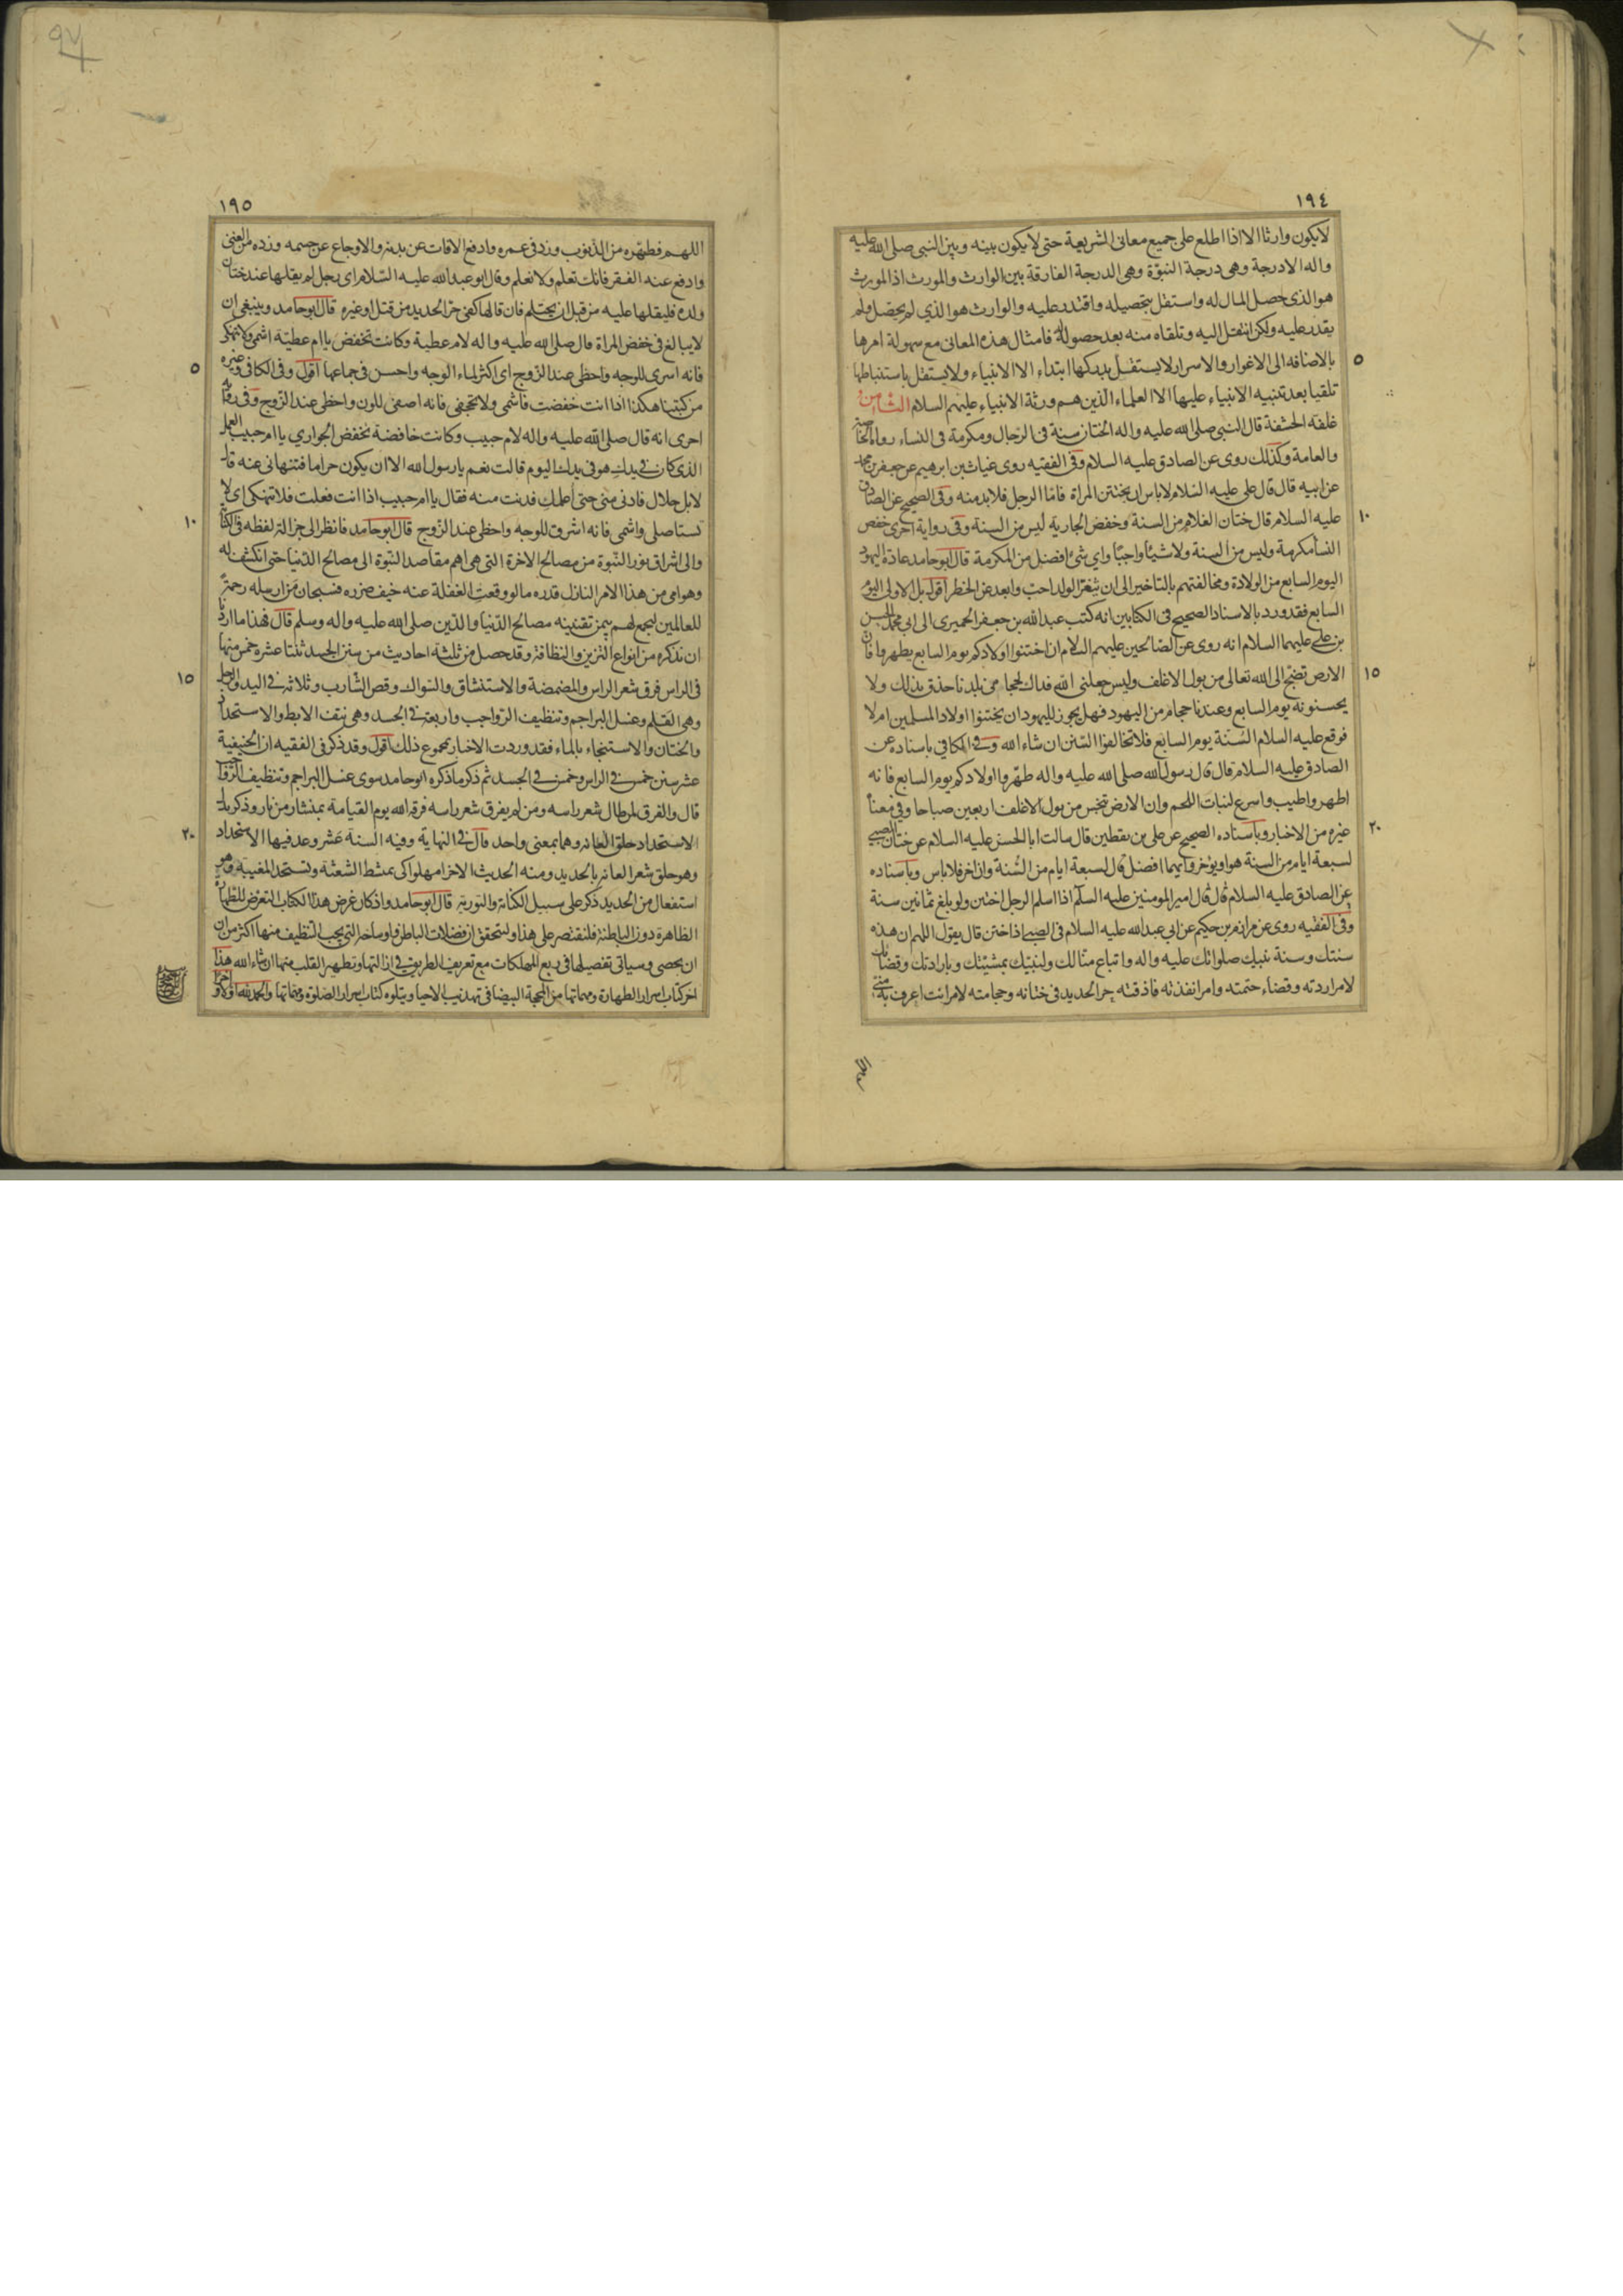 ١٩٤
لايكون وارثا الا اذا اطلع على جميع معانى الشريعة حتى لا يكون بينه وبين النبى صلى الله عليه
واله الا درجة وهى درجة النبوّة وهى الدرجة الفارقة بين الوارث والمورث اذ المورث
هو الذى حصل المال له واستقل بتحصيله واقتدر عليه والوارث هو الذي لم يحصّل ولم
يقدر عليه ولكن انتقل اليه وتلقاه منه بعد حصوله له فامثال هذه المعانى مع سهولة امرها
٥
بالاضافه الى الاغوار والاسرار لا يستقل بدركها ابتداء الا الانبياء ولا يستقل باستنباطها
تلقيا بعد تنبيه الانبياء عليها الا العلماء الذين هم ورثة الانبياء عليهم السلام الثامن
غلفة الحشفة قال النبى صلى الله عليه واله الختان سنة فى الرجال ومكرمة فى النساء رواه الخاصة
والعامة وكذلك روى عن الصادق عليه السلام وفى الفقيه روى غياث بن ابرهيم عن جعفر بن محمد
عن ابيه قال قال على عليه السلام لاباس ان لا يختتن المراة فامّا الرجل فلا بد منه وفى الصحيح عن الصادق
١٠
عليه السلام قال ختان الغلام من السنة وخفض الجارية ليس من السنة وفى رواية اخرى خفض
النسا مكرمة وليس من السنة ولا شيئا واجبًا واي شئ افضل من المكرمة قال ابو حامد عادة اليهود
اليوم السابع من الولادة ومخالفتهم بالتاخير الى ان يثغر الولد احب وابعد عن الخطر اقول بل الاولى اليوم
السابع فقد ورد بالاسناد الصحيح فى الكتابين انه كتب عبد الله بن جعفر الحميرى الى ابى محمد الحسن
بن على عليهما السلام انه روى عن الصالحين عليهم السلام ان اختنوا اولادكم يوم السابع يطهروا فان
١٥
الارض تضجّ الى الله تعالى من بول الاغلف وليس جعلنى الله فداك لحجامى بلدنا حذق بذلك ولا
يحسنونه يوم السابع وعندنا حجام من اليهود فهل يجوز لليهود ان يختنوا اولاد المسلمين ام لا
فوقع عليه السلام السّنة يوم السابع فلا تخالفوا السّنن ان شاء الله وفى الكافي باسناده عن
الصادق عليه السلام قال قال رسول الله صلى الله عليه واله طهّروا اولادكم يوم السابع فانه
اطهر واطيب واسرع لنبات اللحم وان الارض تنجس من بول الاغلف اربعين صباحا وفى معناه
٢٠
غيره من الاخبار وباسناده الصحيح عن على بن يقطين قال سالت ابا الحسن عليه السلام عن ختان الصبى
لسبعة ايام من السنة هو او يؤخر وايهما افضل قال لسبعة ايام من السّنة وان اخر فلا باس وباسناده
عن الصادق عليه السلام قال قال امير المومنين عليه السلام اذا اسلم الرجل اختتن ولو بلغ ثمانين سنة
وفى الفقيه روى عن مرازم بن حكيم عن ابى عبد الله عليه السلام فى الصبى اذا ختن قال يقول اللهم ان هذه
سنتك وسنة نبيك صلواتك عليه واله واتباع مثالك ولنبيّك بمشيّتك وبارادتك وقضائك
لامر اردته وقضاء حتمته وامر انفذته فاذقته حر الحديد فى ختانه وحجامته لامر انت اعرف به منى
اللهم
١٩٥
اللهم فطهّره من الذنوب وزد فى عمره وادفع الافات عن بدنه والاوجاع عن جسمه وزده من الغنى
وادفع عنه الفقر فانك تعلم ولا نعلم وقال ابو عبد الله عليه السّلام اى رجل لم يقلها عند ختان
ولده فليقلها عليه من قبل ان يحتلم فان قالها كفى حرّ الحديد من قتل او غيره قال ابو حامد وينبغى ان
لا يبالغ فى خفض المراة قال صلى الله عليه واله لام عطية وكانت تخفض يا ام عطيّة اشمى ولا تنهكى
٥
فانه اسرى للوجه واحظى عند الزوج اى اكثر لماء الوجه واحسن فى جماعها اقول وفى الكافى وغيره
من كتبنا هكذا اذا انت خفضت فاشمى ولا تجحفى فانه اصفى للون واحظى عند الزوج وفى رواية
اخرى انه قال صلى الله عليه واله لام حبيب وكانت خافضة تخفض الجواري يا ام حبيب العمل
الذى كان فى يدك هو فى يدك اليوم قالت نعم يا رسول الله الا ان يكون حراما فتنهانى عنه قال
لا بل حلال فادنى منى حتى اعلمك فدنت منه فقال يا ام حبيب اذا انت فعلت فلا تنهكى اى لا
١٠
تستاصلى واشمى فانه اشرق للوجه واحظى عند الزوج قال ابو حامد فانظر الى جزالة لفظه فى الكناية
والى اشراق نور النّبوة من مصالح الاخرة التى هى اهم مقاصد النّبوة الى مصالح الدّنيا حتى انكشف له
وهو امى من هذا الامر النازل قدره ما لو وقعت الغفلة عنه خيف ضرره فسبحان من ارسله رحمة
للعالمين ليجمع لهم بيمن تقنينه مصالح الدّنيا والدّين صلى الله عليه واله وسلم قال فهذا ما اردنا
ان نذكره من انواع التزين والنظافة وقد حصل من ثلثه احاديث من سنن الجسد ثنتا عشره خمس منها
١٥
فى الراس فرق شعر الراس والمضمضة والاستنشاق والسّواك وقص الشّارب وثلاثة فى اليد والرجل
وهى القلم وغسل البراجم وتنظيف الرّواجب واربعة فى الجسد وهى نتف الابط والاستحداد
والختان والاستنجاء بالماء فقد وردت الاخبار بمجموع ذلك اقول وقد ذكر فى الفقيه ان الحنيفية
عشر سنن خمس فى الراس وخمس فى الجسد ثم ذكر ما ذكره ابو حامد سوى غسل البراجم وتنظيف الرّواجب
قال والفرق لمن طال شعر راسه ومن لم يفرق شعر راسه فرقه الله يوم القيامة بمنشار من نار وذكر بدل
٢٠
الاستحداد حلق العانه وهما بمعنى واحد قال فى النهاية وفيه السنة عشر وعد فيها الاستحداد
وهو حلق شعر العانه بالحديد ومنه الحديث الاخر امهلوا كى يمتشط الشعثة وتستحد المغيبة وهو
استفعال من الحديد ذكر على سبيل الكناية والتورية قال ابو حامد واذ كان غرض هذا الكتاب التعرّض للطهارة
الظاهرة دون الباطنة فلنقتصر على هذا وليتحقق ان فضلات الباطن واوساخه التى يجب التنظيف منها اكثر من ان
ان يحصى وسياتى تفصيلها فى ربع المهلكات مع تعريف الطريق فى ازالتها وتطهير القلب منها ان شاء الله هذا
اخر كتاب اسرار الطهارة ومهماتها من المحجة البيضا فى تهذيب الاحيا ويتلوه كتاب اسرار الصلوة ومهماتها والحمد لله اولا و اخرا